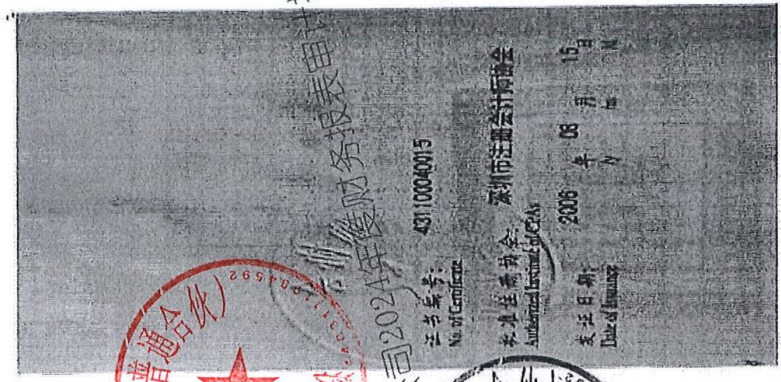 证书编号: 431100040015
No. of Certificate
批准注册协会: 深圳市注册会计师协会
Authorized Institute of CPAs
发证日期: 2006 年 08 月 15 日
Date of Issuance /y /m /d
司2024年度财务报表审计
普通合伙)